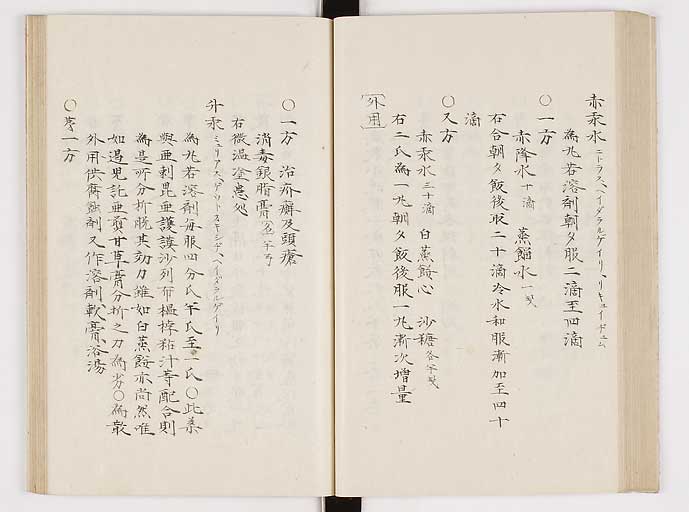 赤汞水 ニトラス、ヘイダラルゲイリ、リキュイデュム
為丸若溶剤朝夕服二滴至四滴
〇一方
赤降水 十滴 蒸餾水 一戔
右合朝夕飯後服二十滴冷水和服漸加至四十
滴
〇又方
赤汞水 三十滴 白蒸餾心 沙糖 各半戔
右二氏為一丸朝夕飯後服一丸漸次増量
外用
〇一方 治疥癬及頭瘡
消毒銀脂膏
右微温塗患処
升汞
為丸若溶剤毎服四分氏 至一氏〇此薬
与亜剌毘亜護謨沙列布榲桲粘汁等配合則
為是所分析脱其効力雖如白蒸餾亦尚然唯
如過児託亜爾甘草膏分析之力為劣〇為散
外用供腐蝕剤又作溶剤軟膏浴湯
〇 一方